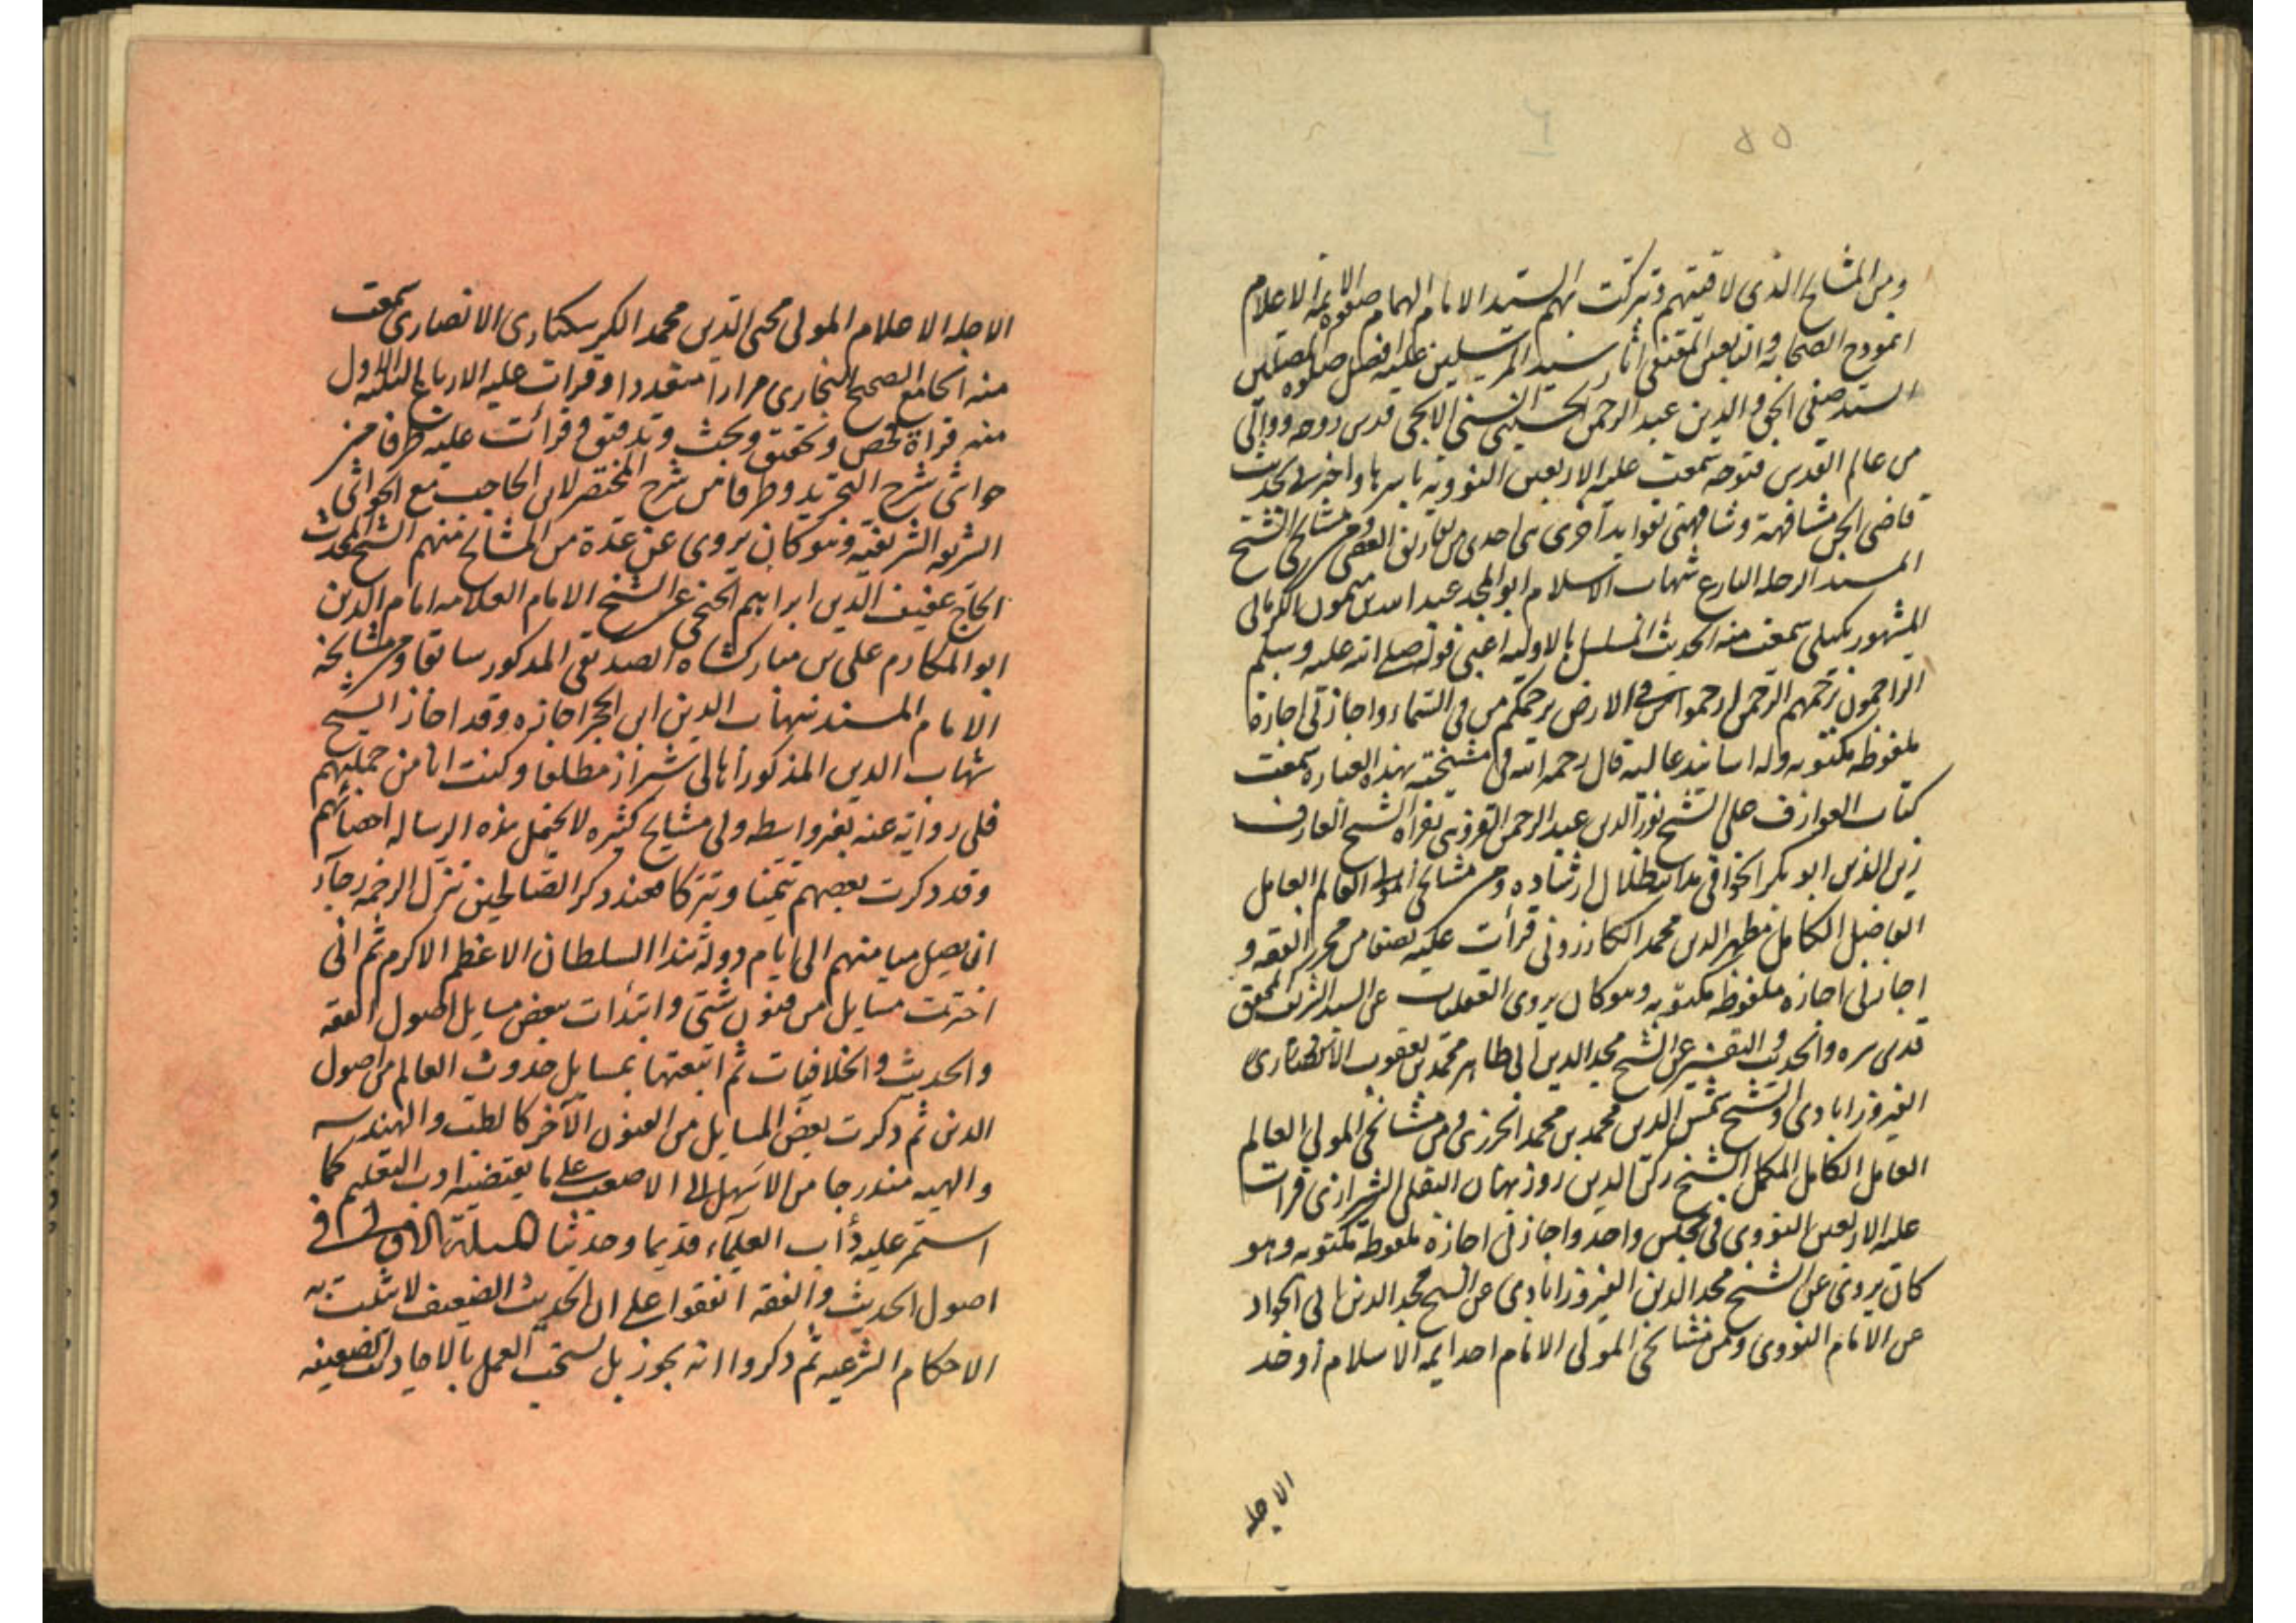 ومن المشايخ الذى لاقيتهم وتبركت بهم السيد الامام الهمام صفوه الائمه الاعلام
انموذج الصحابه والتابعين المقتفى اثار سيد المرسلين عليه افضل صلوه المصلين
السيد صفى الحق والدين عبد الرحمن الحسينى الايجى قدس روحه ووالى
من عالم القدس فتوحه سمعت عليه الاربعين النوويه باسرها واخبرنى بحديث
قاضى الجن مشافهة وشافهنى بفوايد اخرى ومن مشايخى الشيخ
المسند الرحله البارع شهاب الاسلام ابو المجد عبد الله بن ميمون الكرمانى
المشهور بكيلى سمعت منه الحديث المسلسل بالاوليه اعنى قوله صلى الله عليه وسلم
الراحمون يرحمهم الرحمن ارحموا من فى الارض يرحمكم من فى السماء واجازنى اجازة
ملفوظه مكتوبه وله اسانيد عاليه قال رحمه الله فى مشيخته بهذه العباره سمعت
كتاب العوارف على الشيخ نور الدين عبد الرحمن بقراه الشيخ العارف
زين الدين ابو بكر الخوافى مد الله ظلال ارشاده ومن مشايخى المولى العالم العامل
الفاضل الكامل مظهر الدين محمد الكازرونى قرأت عليه من محرر الفقه و
اجازنى اجازه ملفوظه مكتوبه وهو كان يروى العقليات عن السيد الشريف المحقق
قدس سره والحديث والتفسير عن الشيخ مجد الدين ابى طاهر محمد بن يعقوب الانصارى
الفيروزابادى والشيخ شمس الدين محمد بن محمد الجزرى ومن مشائخى المولى العالم
العامل الكامل المكمل الشيخ ركن الدين روزبهان البقلى الشيرازى قرات
عليه الاربعين النووى فى مجلس واحد واجازنى اجازه ملفوظه مكتوبه وهو
كان يروى عن الشيخ مجد الدين الفيروزابادى عن الشيخ مجد الدين ابى الجواد
عن الامام النووى ومن مشائخى المولى الامام احد ايمه الاسلام اوحد
الاجله
الاجله الاعلام المولى محى الدين محمد الكوسكنارى الانصارى سمعت
منه الجامع الصحيح البخارى مرارا متعددا وقرات عليه الارباع الثلثه الاول
منه قراة فحص وتحقيق وبحث وتدقيق وقرأت عليه طرفا من
حواشى شرح التجريد وطرفا من شرح المختصر لابن الحاجب مع الحواشى
الشريفه الشريفيه وهو كان يروى عن عدة من المشايخ منهم الشيخ المحدث
الحاج عفيف الدين ابراهيم الخنجى عن الشيخ الامام العلامه امام الدين
ابو المكارم على بن مباركشاه الصديقى المذكور سابقا ومن مشايخه
الامام المسند شهاب الدين ابن الحجر اجازه وقد اجاز الشيخ
شهاب الدين المذكور اهالى شيراز مطلقا وكنت انا من جملتهم
فلى روايه عنه بغير واسطه ولى مشايخ كثيره لا يحتمل هذه الرساله احصائهم
وقد ذكرت بعضهم تيمنا وتبركا فعند ذكر الصالحين تنزل الرحمه رجآء
ان يصل ميامنهم الى ايام دولة هذا السلطان الاعظم الاكرم ثم انى
اخترت مسايل من فنون شتى وابتدات ببعض مسايل اصول الفقه
والحديث والخلافيات ثم اتبعتها بمسايل حدوث العالم من اصول
الدين ثم ذكرت بعض المسايل من الفنون الآخر كالطب والهندسه
والهيه مندرجا من الاسهل الى الاصعب على ما يقتضيه ادب التعليم كما
استمر عليه دأب العلمآء قديما وحديثا المسئلة الاولى فى
اصول الحديث والفقه اتفقوا على ان الحديث الضعيف لا تثبت به
الاحكام الشرعيه ثم ذكروا انه يجوز بل يستحب العمل بالاحاديث الضعيفه